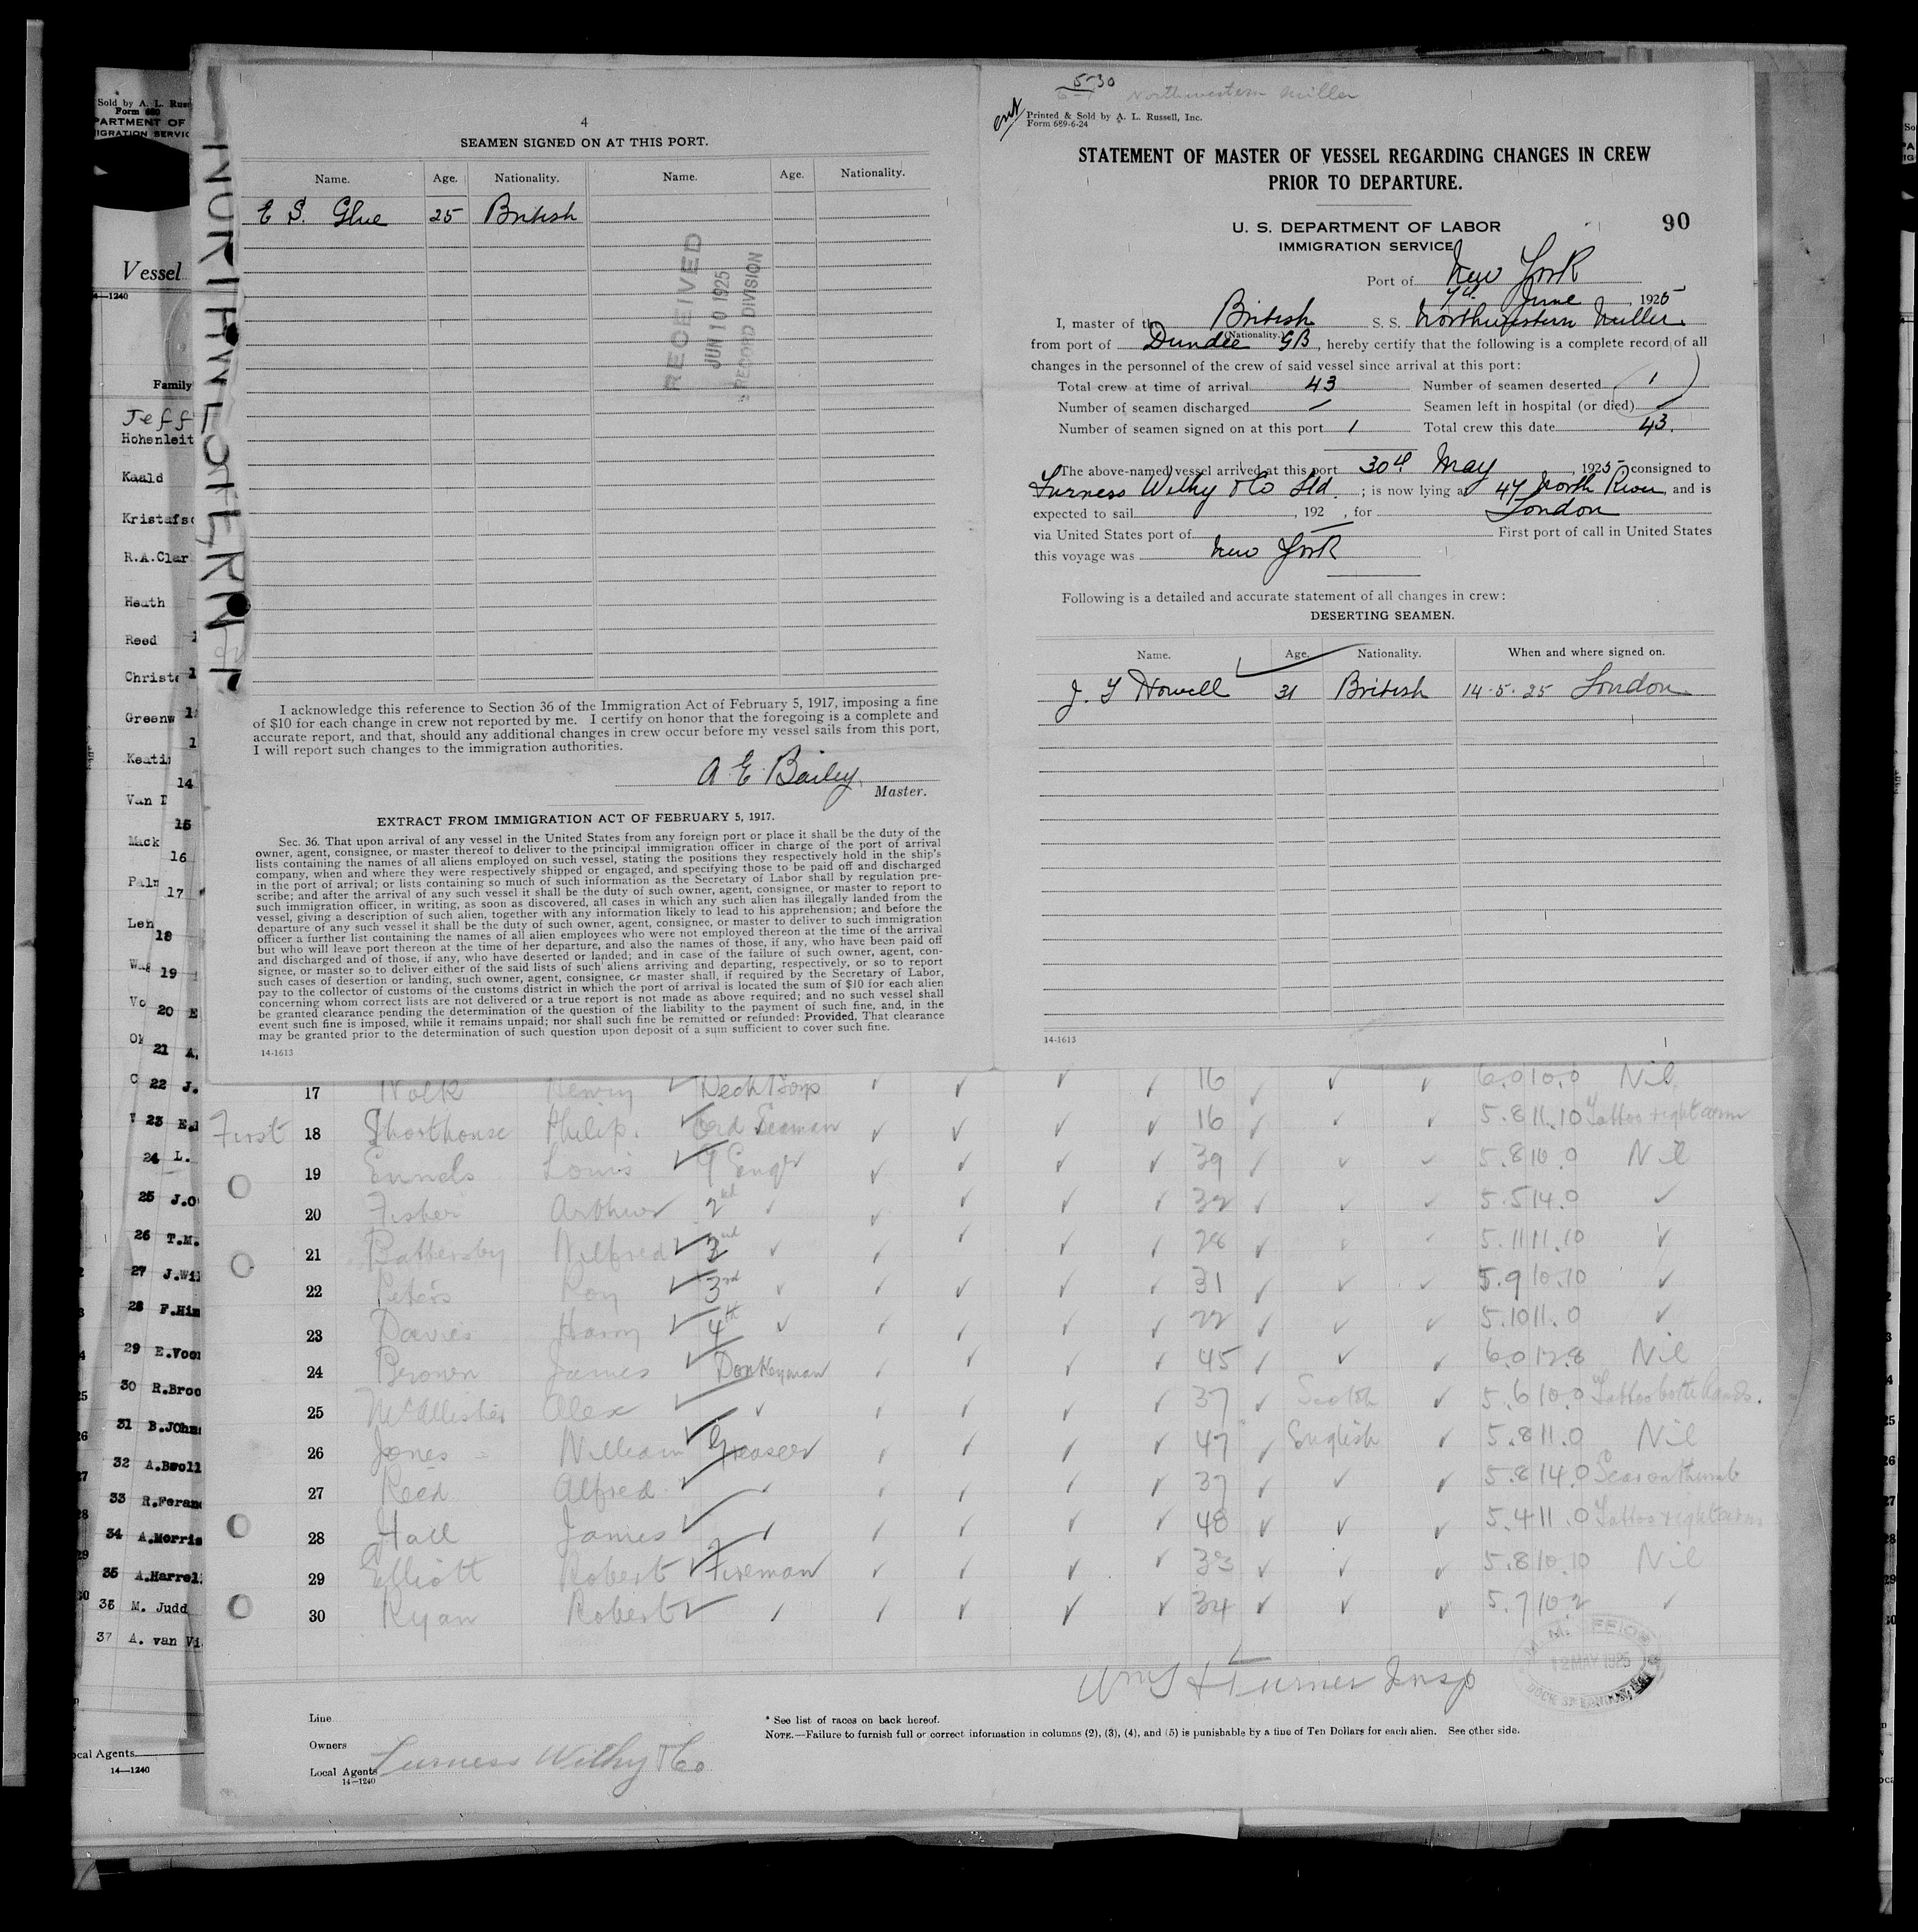 4
SEAMEN SIGNED ON AT THIS PORT.
Name. Age. Nationality. Name. Age. Nationality.
E S. Glue 25 British
RECEIVED
JUN 10 1925
RECORD DIVISION
I acknowledge this reference to Section 36 of the Immigration Act of February 5, 1917, imposing a fine
of $10 for each change in crew not reported by me. I certify on honor that the foregoing is a complete and
accurate report, and that, should any additional changes in crew occur before my vessel sails from this port,
I will report such changes to the immigration authorities.
A E Bailey
Master.
EXTRACT FROM IMMIGRATION ACT OF FEBRUARY 5, 1917.
Sec. 36. That upon arrival of any vessel in the United States from any foreign port or place it shall be the duty of the
owner, agent, consignee, or master thereof to deliver to the principal immigration officer in charge of the port of arrival
lists containing the names of all aliens employed on such vessel, stating the positions they respectively hold in the ship's
company, when and where they were respectively shipped or engaged, and specifying those to be paid off and discharged
in the port of arrival; or lists containing so much of such information as the Secretary of Labor shall by regulation pre-
scribe; and after the arrival of any such vessel it shall be the duty of such owner, agent, consignee, or master to report to
such immigration officer, in writing, as soon as discovered, all cases in which any such alien has illegally landed from the
vessel, giving a description of such alien, together with any information likely to lead to his apprehension; and before the
departure of any such vessel it shall be the duty of such owner, agent, consignee, or master to deliver to such immigration
officer a further list containing the names of all alien employees who were not employed thereon at the time of the arrival
but who will leave port thereon at the time of her departure, and also the names of those, if any, who have been paid off
and discharged and of those, if any, who have deserted or landed; and in case of the failure of such owner, agent, con-
signee, or master so to deliver either of the said lists of such aliens arriving and departing, respectively, or so to report
such cases of desertion or landing, such owner, agent, consignee, or master shall, if required by the Secretary of Labor,
pay to the collector of customs of the customs district in which the port of arrival is located the sum of $10 for each alien
concerning whom correct lists are not delivered or a true report is not made as above required; and no such vessel shall
be granted clearance pending the determination of the question of the liability to the payment of such fine, and, in the
event such fine is imposed, while it remains unpaid; nor shall such fine be remitted or refunded: Provided, That clearance
may be granted prior to the determination of such question upon deposit of a sum sufficient to cover such fine.
14-1613
5-30
Northwestern Miller
Printed & Sold by A. L. Russell, Inc.
Form 689-6-24
STATEMENT OF MASTER OF VESSEL REGARDING CHANGES IN CREW
PRIOR TO DEPARTURE.
U. S. DEPARTMENT OF LABOR
IMMIGRATION SERVICE
90
Port of New York
June, 1925
I, master of the British S. S. Northwestern Miller
(Nationality.)
from port of Dundee GB, hereby certify that the following is a complete record of all
changes in the personnel of the crew of said vessel since arrival at this port:
Total crew at time of arrival 43 Number of seamen deserted 1
Number of seamen discharged Seamen left in hospital (or died)
Number of seamen signed on at this port 1 Total crew this date 43.
The above-named vessel arrived at this port 30th May, 1925 consigned to
Furness Withy & Co Ltd.; is now lying at 47 North River, and is
expected to sail , 192 , for London
via United States port of First port of call in United States
this voyage was New York
Following is a detailed and accurate statement of all changes in crew:
DESERTING SEAMEN.
Name. Age. Nationality. When and where signed on.
J. Y Howell 31 British 14·5·25 London
14-1613
17 Henry Deck Boy 16 6.0 10.0 Nil
First 18 Shorthouse Philip. Ord Seaman 16 5.8 11.10 Tattoo right arm
19 Ennels Louis 39 5.8 10.0 Nil
20 Fisher Arthur 2nd 32 5.5 14.0
21 Battersby Wilfred 2nd 28 5.11 11.10
22 Peters Roy 3rd 31 5.9 10.10
23 Davies Harry 4th 22 5.10 11.0
24 Brown James Donkeyman 45 6.0 12.8 Nil
25 McAllister Alex 37 Scotch 5.6 10.0 Tattoo both hands.
26 Jones William Greaser 47 English 5.8 11.0 Nil
27 Reed Alfred 37 5.8 14.0 Scar on thumb
28 Hall James 48 5.4 11.0 Tattoo right arm
29 Elliott Robert Fireman 33 5.8 10.10 Nil
30 Ryan Robert 34 5.7 10.2
Turner Insp
12 MAY 1925
Line
Owners
Local Agents Furness Withy & Co
14-1240
* See list of races on back hereof.
NOTE.—Failure to furnish full or correct information in columns (2), (3), (4), and (5) is punishable by a fine of Ten Dollars for each alien. See other side.
Sold by A. L. Russ
Form 680
Vessel
4-1240
Family
Jeff
Hohenleit
Kaald
Kristafs
R.A.Clar
Heath
Reed
Christ
Greenw
Keati
14
Van
15
Mack
16
17
Len
18
19
20 E
21 A.
22 J.
23 E.
24 L.
25 J.O
26 T.M.
27 J.Wi
28 F.Him
29 E.Voo
30 R.Broo
31 B.JOhn
32 A.Bsoll
33 R.Feran
34 A.Morris
35 A.Harrel
36 M. Judd
37 A. van Vi
cal Agents
14—1240